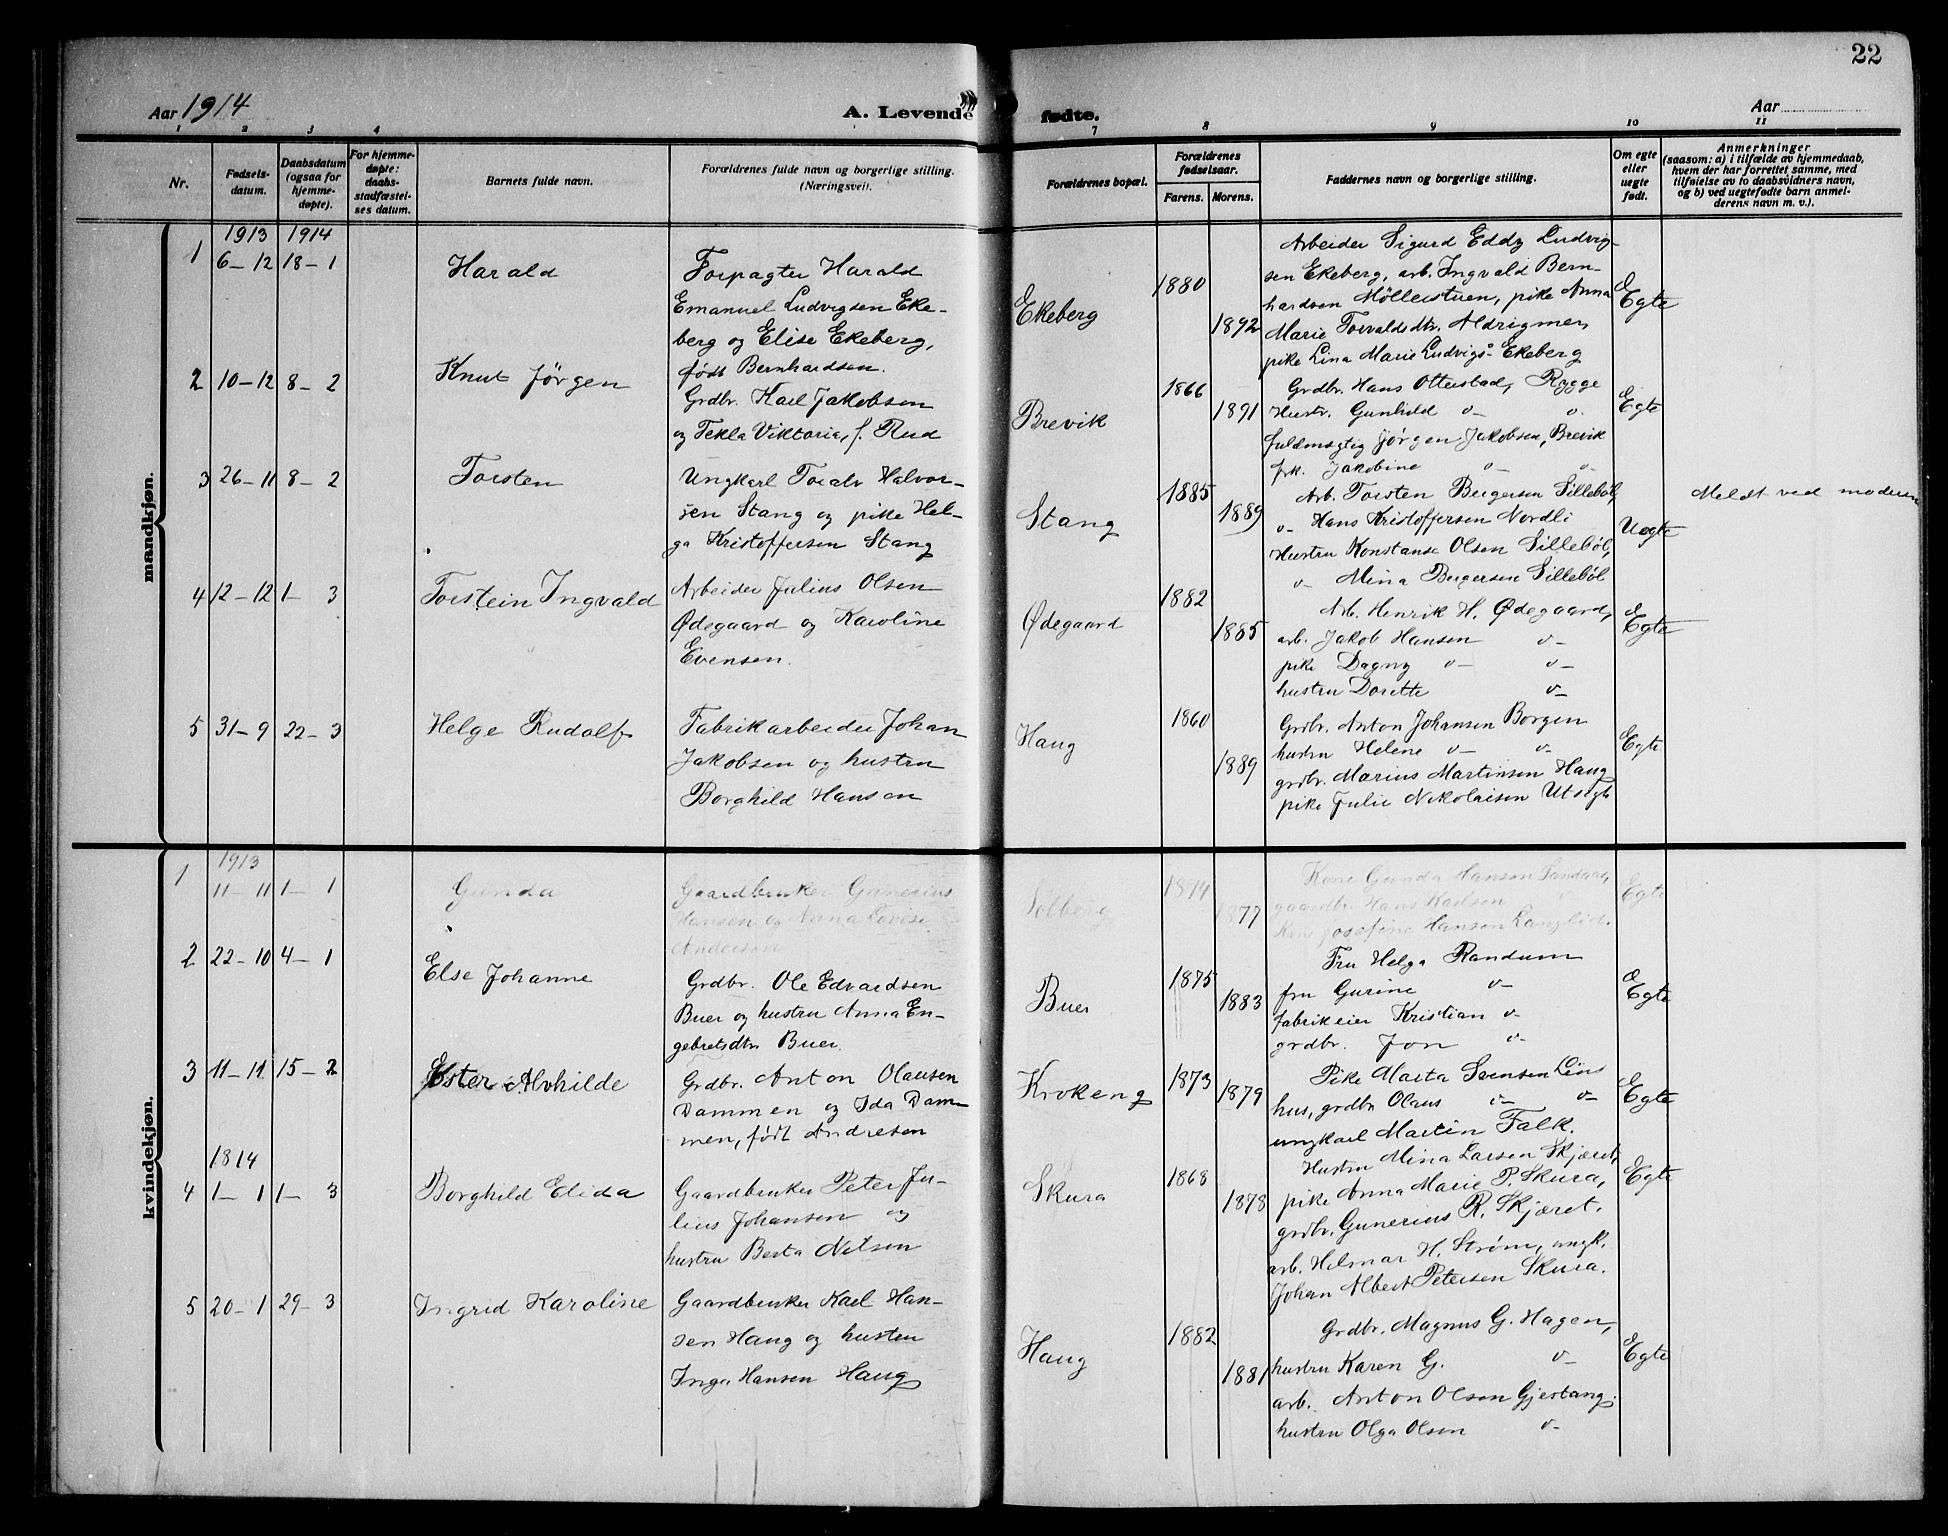 22
Aar 1914
A. Levende fødte.
Aar
1 2 3 4 7 8 9 10 11
Nr.
Fødsels-
datum.
Daabsdatum
(ogsaa for
hjemme-
døpte).
For hjemme-
døpte:
daabs-
stadfæstel-
ses datum.
Barnets fulde navn.
Forældrenes fulde navn og borgerlige stilling.
(Næringsvei).
Forældrenes bopæl.
Forældrenes
fødselsaar.
Farens. Morens.
Faddernes navn og borgerlige stilling.
Om egte
eller
uegte
født.
Anmerkninger
(saasom: a) i tilfælde av hjemmedaab,
hvem der har forrettet samme, med
tilføielse av to daabsvidners navn,
og b) ved uegtefødte barn anmel-
derens navn m. v.).
mandkjøn.
1913 1914
1 6–12 18–1 Harald
Forpagter Harald
Emanuel Ludvigsen Eke-
berg og Elise Ekeberg,
født Bernhardsen.
Ekeberg 1880 1892
Arbeider Sigurd Eddy Ludvig-
sen Ekeberg, arb. Ingvald Bern-
hardsen Möllerstuen, pike Anna
Marie Torvaldsdtr. Aldrigmer,
pike Lina Marie Ludvigs- Ekeberg
Egte
2 10–12 8–2 Knut Jörgen
Grdbr. Karl Jakobsen
og Tekla Viktoria, f. Rud
Brevik 1866 1891
Grdbr. Hans Otterstad, Rygge
Hustr. Gunhild v– v.
fuldmægtig Jörgen Jakobsen, Brevik
frk. Jakobine v– v–
Egte
3 26–11 8–2 Torsten
Ungkarl Toralv Halvor-
sen Stang og pike Hel-
ga Kristoffersen Stang
Stang 1885 1889
Arb. Torsten Bergersen Sillebøl,
v– Hans Kristoffersen Nordli
Hustru Konstanse Olsen Sillebøl,
v– Mina Bergersen Sillebøl
Uegte
Meldt ved moderen
4 12–12 1–3 Torstein Ingvald
Arbeider Julius Olsen
Ødegaard og Karoline
Evensen.
Ødegaard 1882 1885
Arb. Henrik H. Ødegaard,
arb. Jakob Hansen v–
pike Dagny v– v–
hustru Dorette v–
Egte
5 31–9 22–3 Helge Rudolf
Fabrikarbeider Johan
Jakobsen og hustru
Borghild Hansen
Haug 1860 1889
Grdbr. Anton Johansen Borgen
hustru Helene v– v–
grdbr. Marius Martinsen Haug
pike Julie Nikolaisen Utsigt
Egte
kvindekjøn.
1913
1 11–11 1–1 Gunda
Gaardbruker Gunerius
Hansen og Anna Lovise
Andersen
Solberg 1874 1877
Kone Gunda Hansen
gaardbr. Hans Karlsen v
Kone Josefine Hansen
Egte
2 22–10 4–1 Else Johanne
Grdbr. Ole Edvardsen
Buer og hustru Anna En-
gebretsdtr. Buer.
Buer 1875 1883
Fru Helga Randum
fru Gurine v–
fabrikeier Kristian v–
grdbr. Jon v–
Egte
3 11–11 15–2 Ester Alvhilde
Grdbr. Anton Olausen
Dammen og Ida Dam-
men, født Andresen
Krokeng 1873 1879
Pike Marta Svensen Løns
hus, grdbr. Olaus v– v–
ungkarl Martin Falk.
Egte
1814
4 1–1 1–3 Borghild Elida
Gaardbruker Peter Ju-
lius Johansen og
hustru Berta Nilsen
Skura 1868 1878
Hustru Mina Larsen Skjæret,
pike Anna Marie P. Skura,
grdbr. Gunerius R. Skjæret.
arb. Hilmar H. Strøm, ungk.
Johan Albert Petersen Skura.
Egte
5 20–1 29–3 Ingrid Karoline
Gaardbruker Karl Han-
sen Haug og hustru
Inga Hansen Haug
Haug 1882 1881
Grdbr. Magnus G. Hagen,
hustru Karen G. v–
arb. Anton Olsen Gjestang.
hustru Olga Olsen v–
Egte